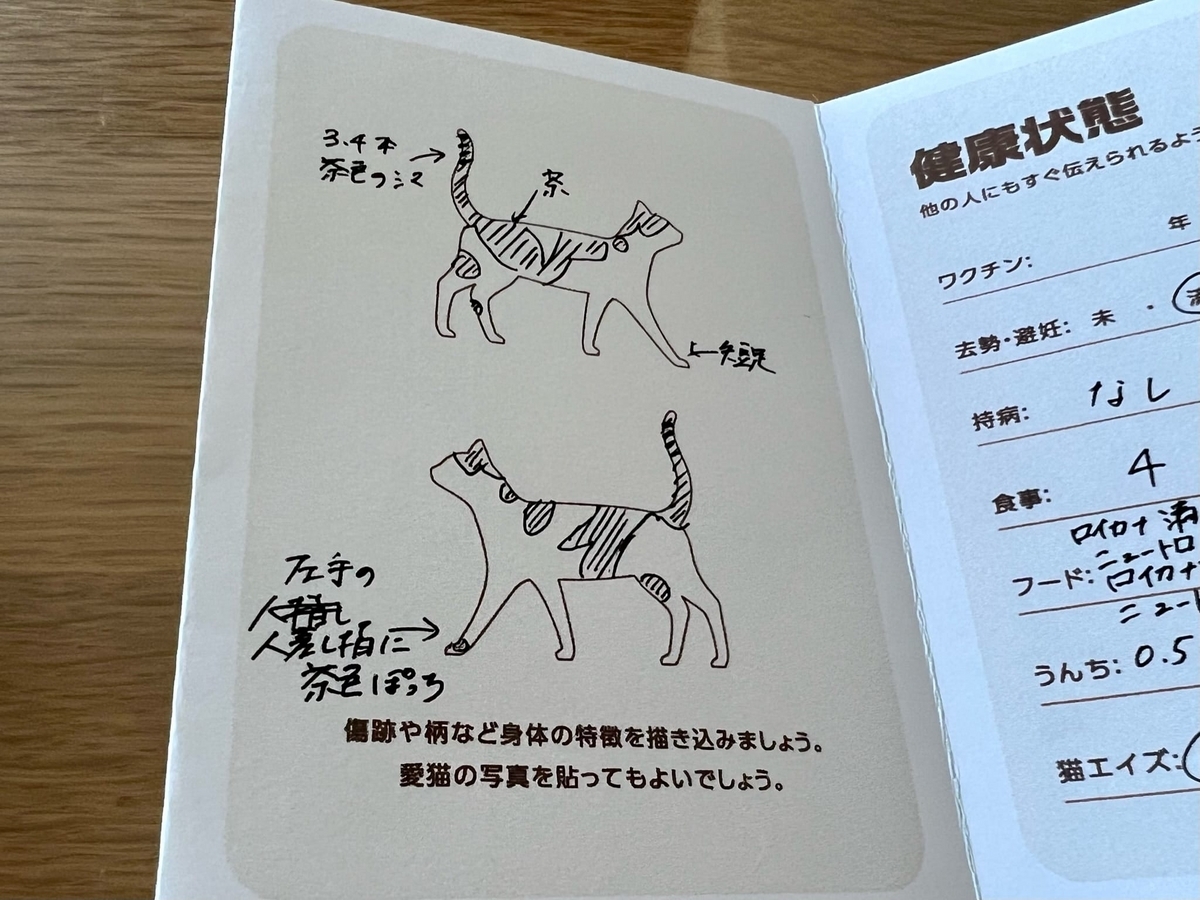 3.4本
茶色のシマ
茶
←短足
左手の
人差し指に
茶色ぽっち
傷跡や柄など身体の特徴を描き込みましょう。
愛猫の写真を貼ってもよいでしょう。
健康状態
他の人にもすぐ伝えられるよう
年
ワクチン:
去勢・避妊: 未 ・ 済
持病: なし
食事: 4
ロイカナ 満
ニュートロ
フード: ロイカナ
ニュート
うんち: 0.5
猫エイズ: